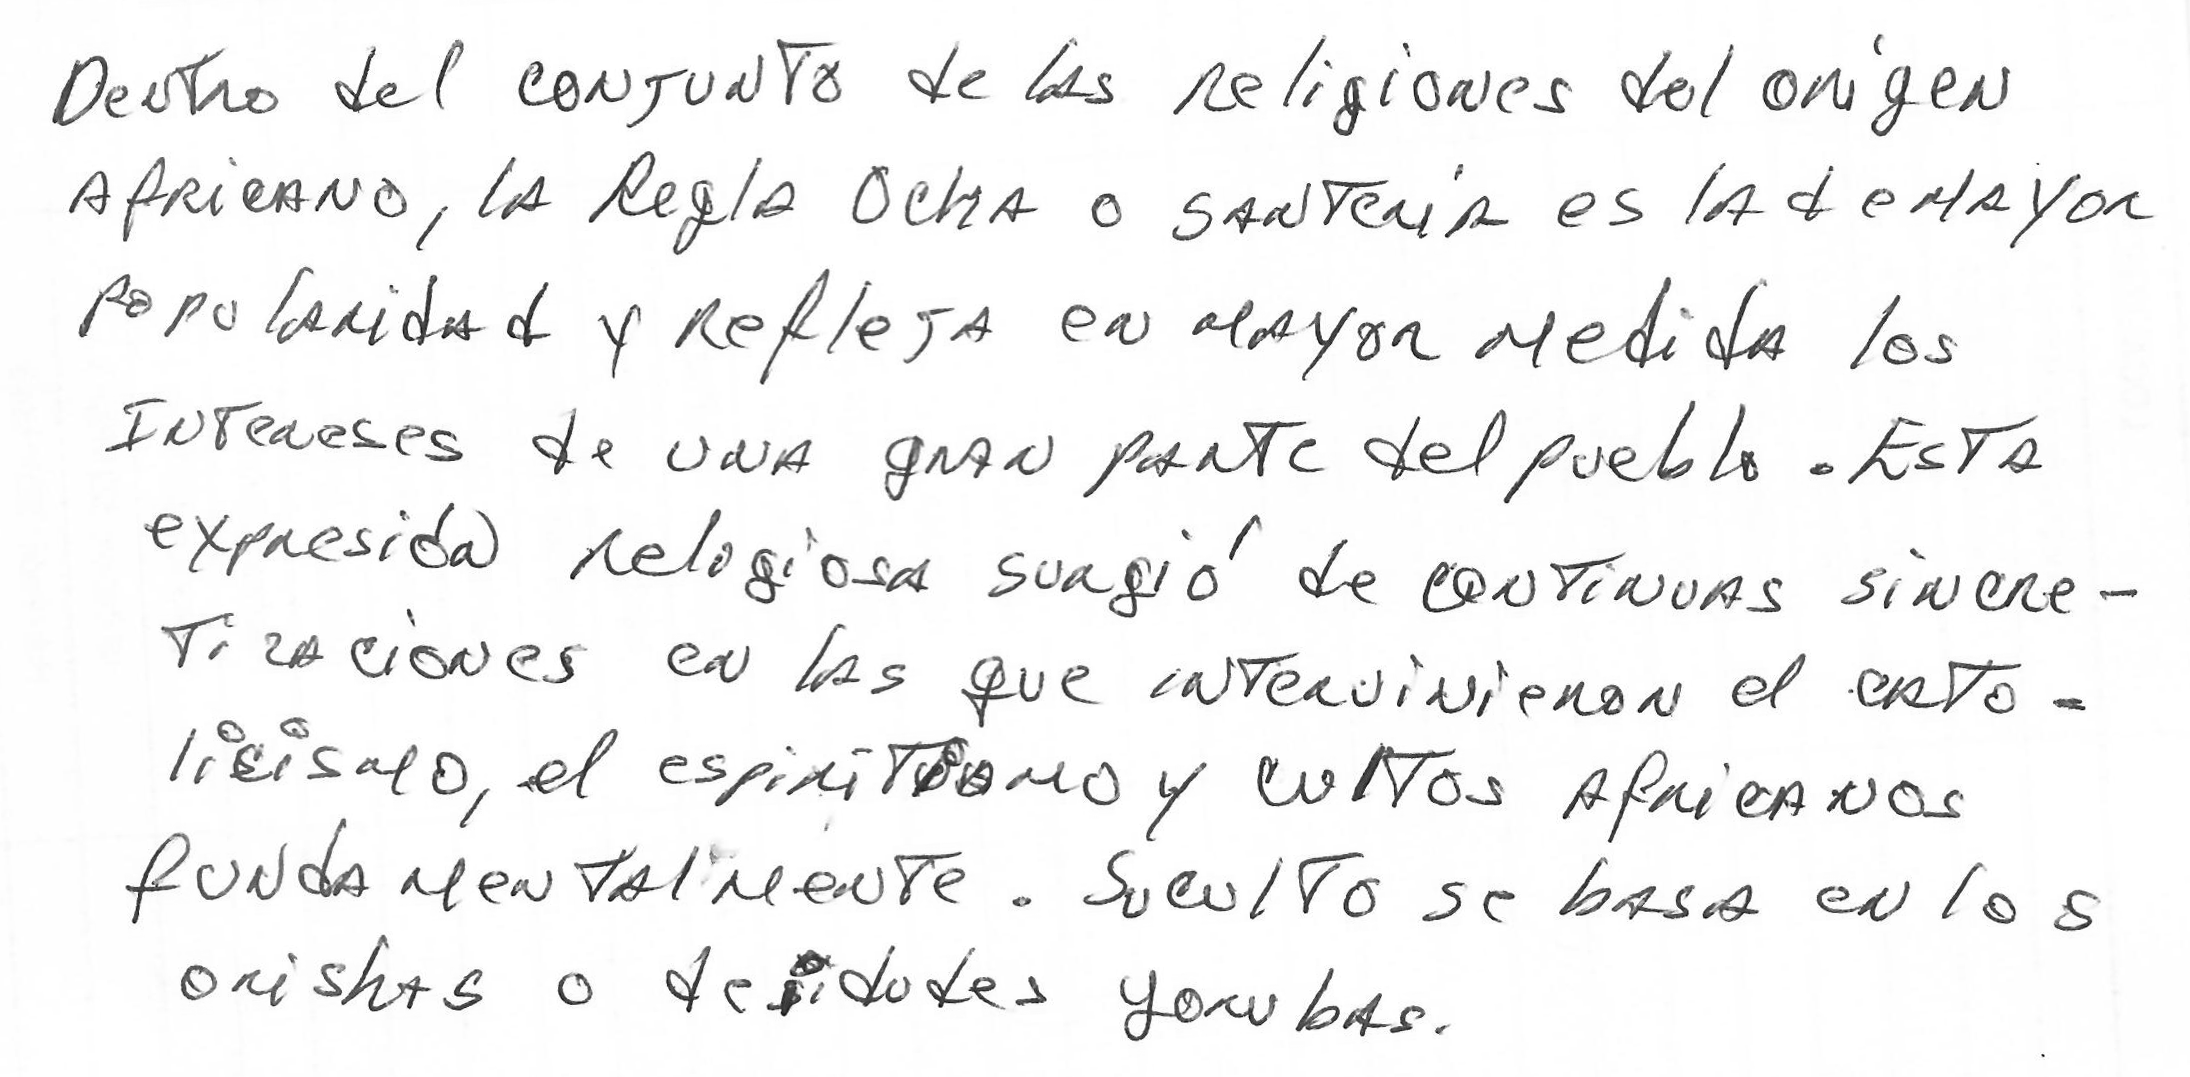 Dentro del conjunto de las religiones del orígen
africano, la Regla Ocha o santería es la de mayor
popularidad y refleja en mayor medida los
Intereses de una gran parte del pueblo. Esta
expresión religiosa surgió de continuas sincre-
tizaciones en las que intervinieron el cato-
licismo, el espiritismo y cultos africanos
fundamentalmente. Su culto se basa en los
orishas o deidades yorubas.